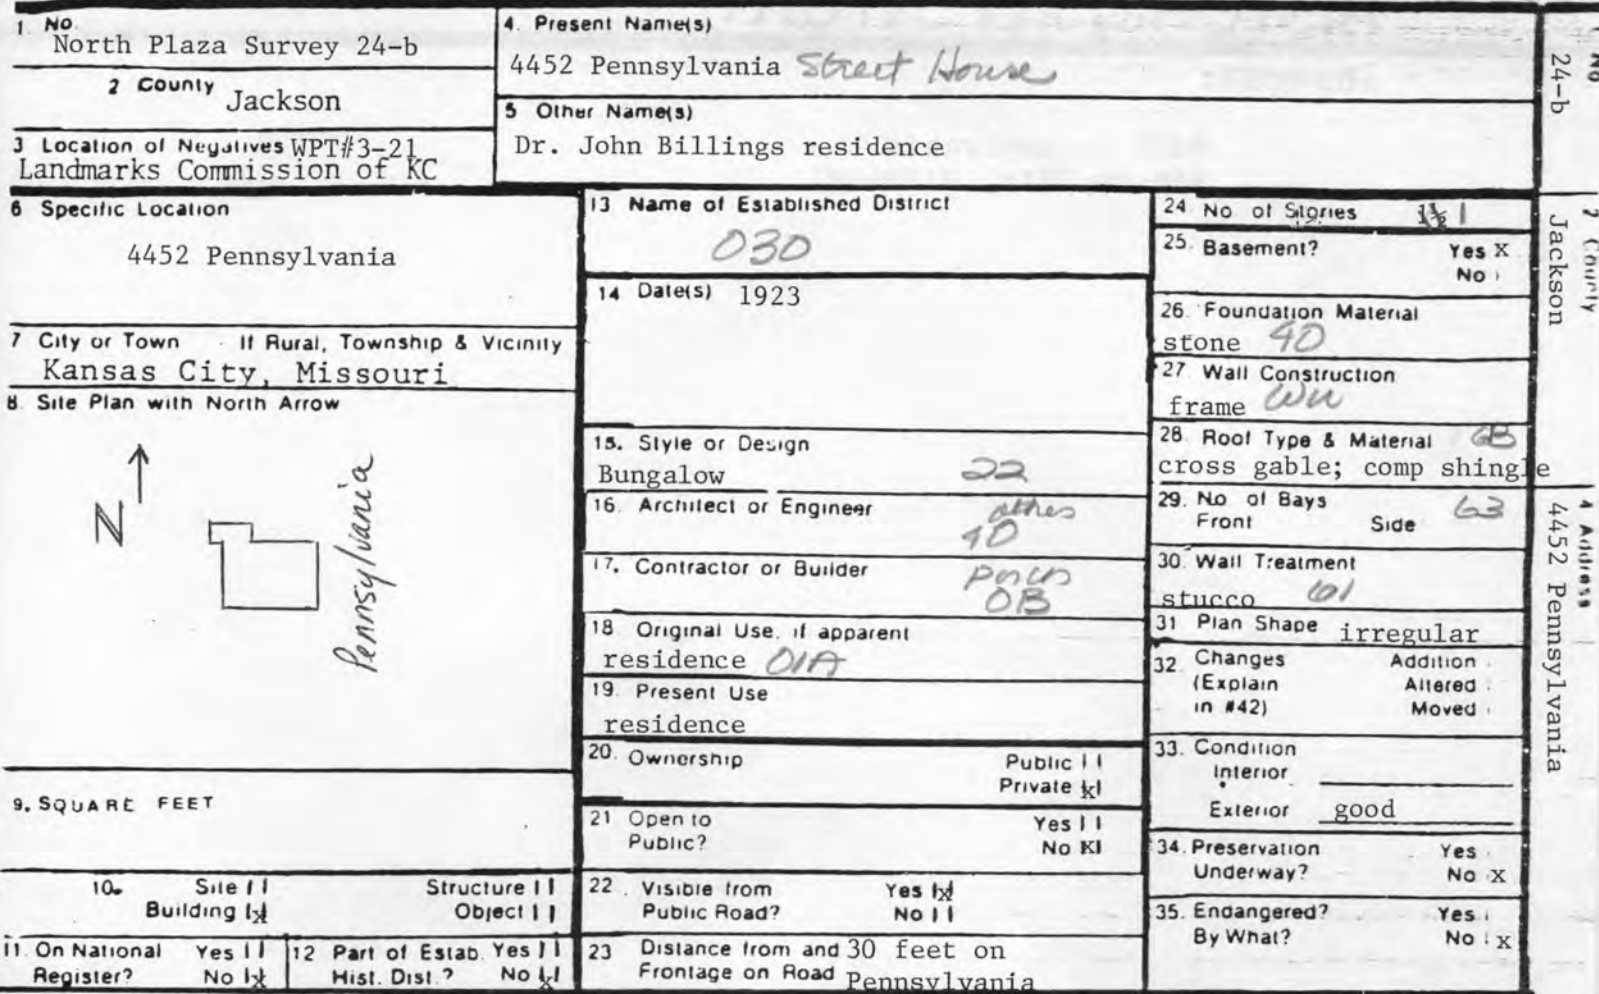 1. No.
North Plaza Survey 24-b
2 County Jackson
3 Location of Negatives WPT#3-21
Landmarks Commission of KC
4. Present Name(s)
4452 Pennsylvania Street House
5 Other Name(s)
Dr. John Billings residence
6 Specific Location
4452 Pennsylvania
7 City or Town If Rural, Township & Vicinity
Kansas City, Missouri
8. Site Plan with North Arrow
N
Pennsylvania
9. SQUARE FEET
10. Site Structure
Building x Object
11. On National Yes
Register? No x
12 Part of Estab. Yes
Hist. Dist.? No x
13 Name of Established District
030
14 Date(s) 1923
15. Style or Design
Bungalow 22
16. Architect or Engineer
40
17. Contractor or Builder
OB
18 Original Use, if apparent
residence 01A
19. Present Use
residence
20. Ownership Public
Private x
21 Open to Yes
Public? No x
22. Visible from Yes x
Public Road? No
23 Distance from and 30 feet on
Frontage on Road Pennsylvania
24. No of Stories 1
25. Basement? Yes X
No
26. Foundation Material
stone 40
27. Wall Construction
frame
28. Roof Type & Material GB
cross gable; comp shingle
29. No of Bays 63
Front Side
30. Wall Treatment
stucco 61
31 Plan Shape irregular
32. Changes Addition
(Explain Altered
in #42) Moved
33. Condition
Interior
Exterior good
34. Preservation Yes
Underway? No X
35. Endangered? Yes
By What? No x
1 No
24-b
2 County
Jackson
4 Address
4452 Pennsylvania